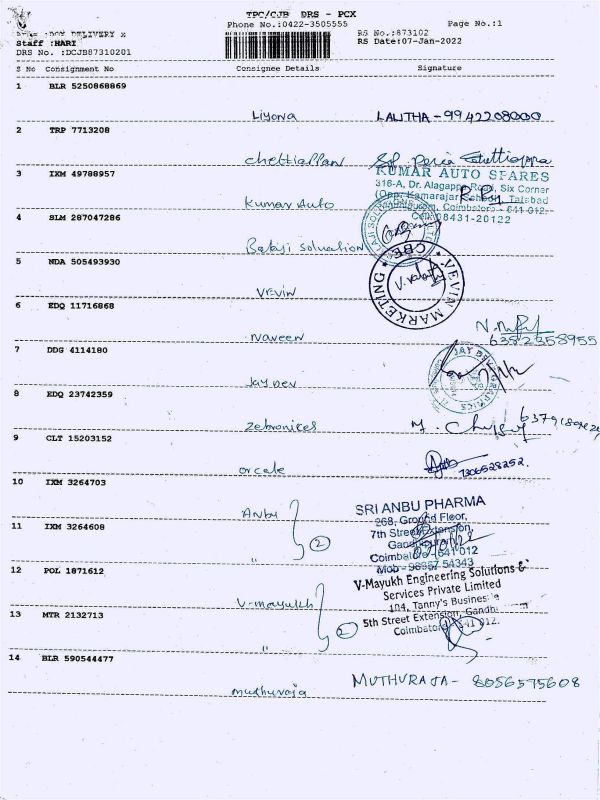 TPC/CJB DRS - PCX
Phone No.:0422-3505555
Page No.:1
DELIVERY
RS No.:873102
Staff :HARI
RS Date:07-Jan-2022
DRS No. :DCJB87310201
S No Consignment No Consignee Details Signature
1 BLR 5250868869
Liyona LALITHA - 9942208000
2 TRP 7713208
chettiappan
3 IXM 49788957
KUMAR AUTO SPARES
316-A, Dr. Alagappa Road, Six Corner
(Opp. Kamarajar School), Tatabad
Coimbatore - 641 012.
Cell: 98431-20122
Kumar Auto
4 SLM 287047286
Balaji solvation
CBE
5 NDA 505493930
VEVIN MARKETING
Vevin
6 EDQ 11716868
Naveen
6382358955
7 DDG 4114180
JAY DEV GRAPHICS
Jay Dev
8 EDQ 23742359
Zebronices
9 CLT 15203152
orcale 7306528252.
10 IXM 3264703
Anbu
SRI ANBU PHARMA
268, Ground Floor,
7th Street Extension,
11 IXM 3264608
" 2
Coimbatore - 641 012
54343
12 POL 1871612
V-Mayukh Engineering Solutions &
Services Private Limited
V-mayukh
104, Tanny's Business
13 MTR 2132713
5th Street Extension, Gandhi
Coimbatore - 641 012.
" 2
14 BLR 590544477
muthuraja MUTHURAJA - 8056575608